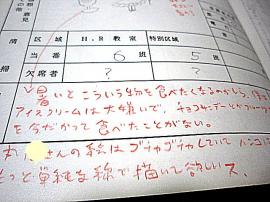 清 区域 H.R教室 特別区域
当番 6班 5班
掃 欠席者 ? ?
暑いとこういう物を食べたくなるのかしら、僕は
アイスクリームは大嫌いで、チョコパーデーとかフルーツ
を今だかって食べたことがない。
さんの線はゴチャゴチャしていて ハンコに
もっと単純な線で描いて欲しいス。